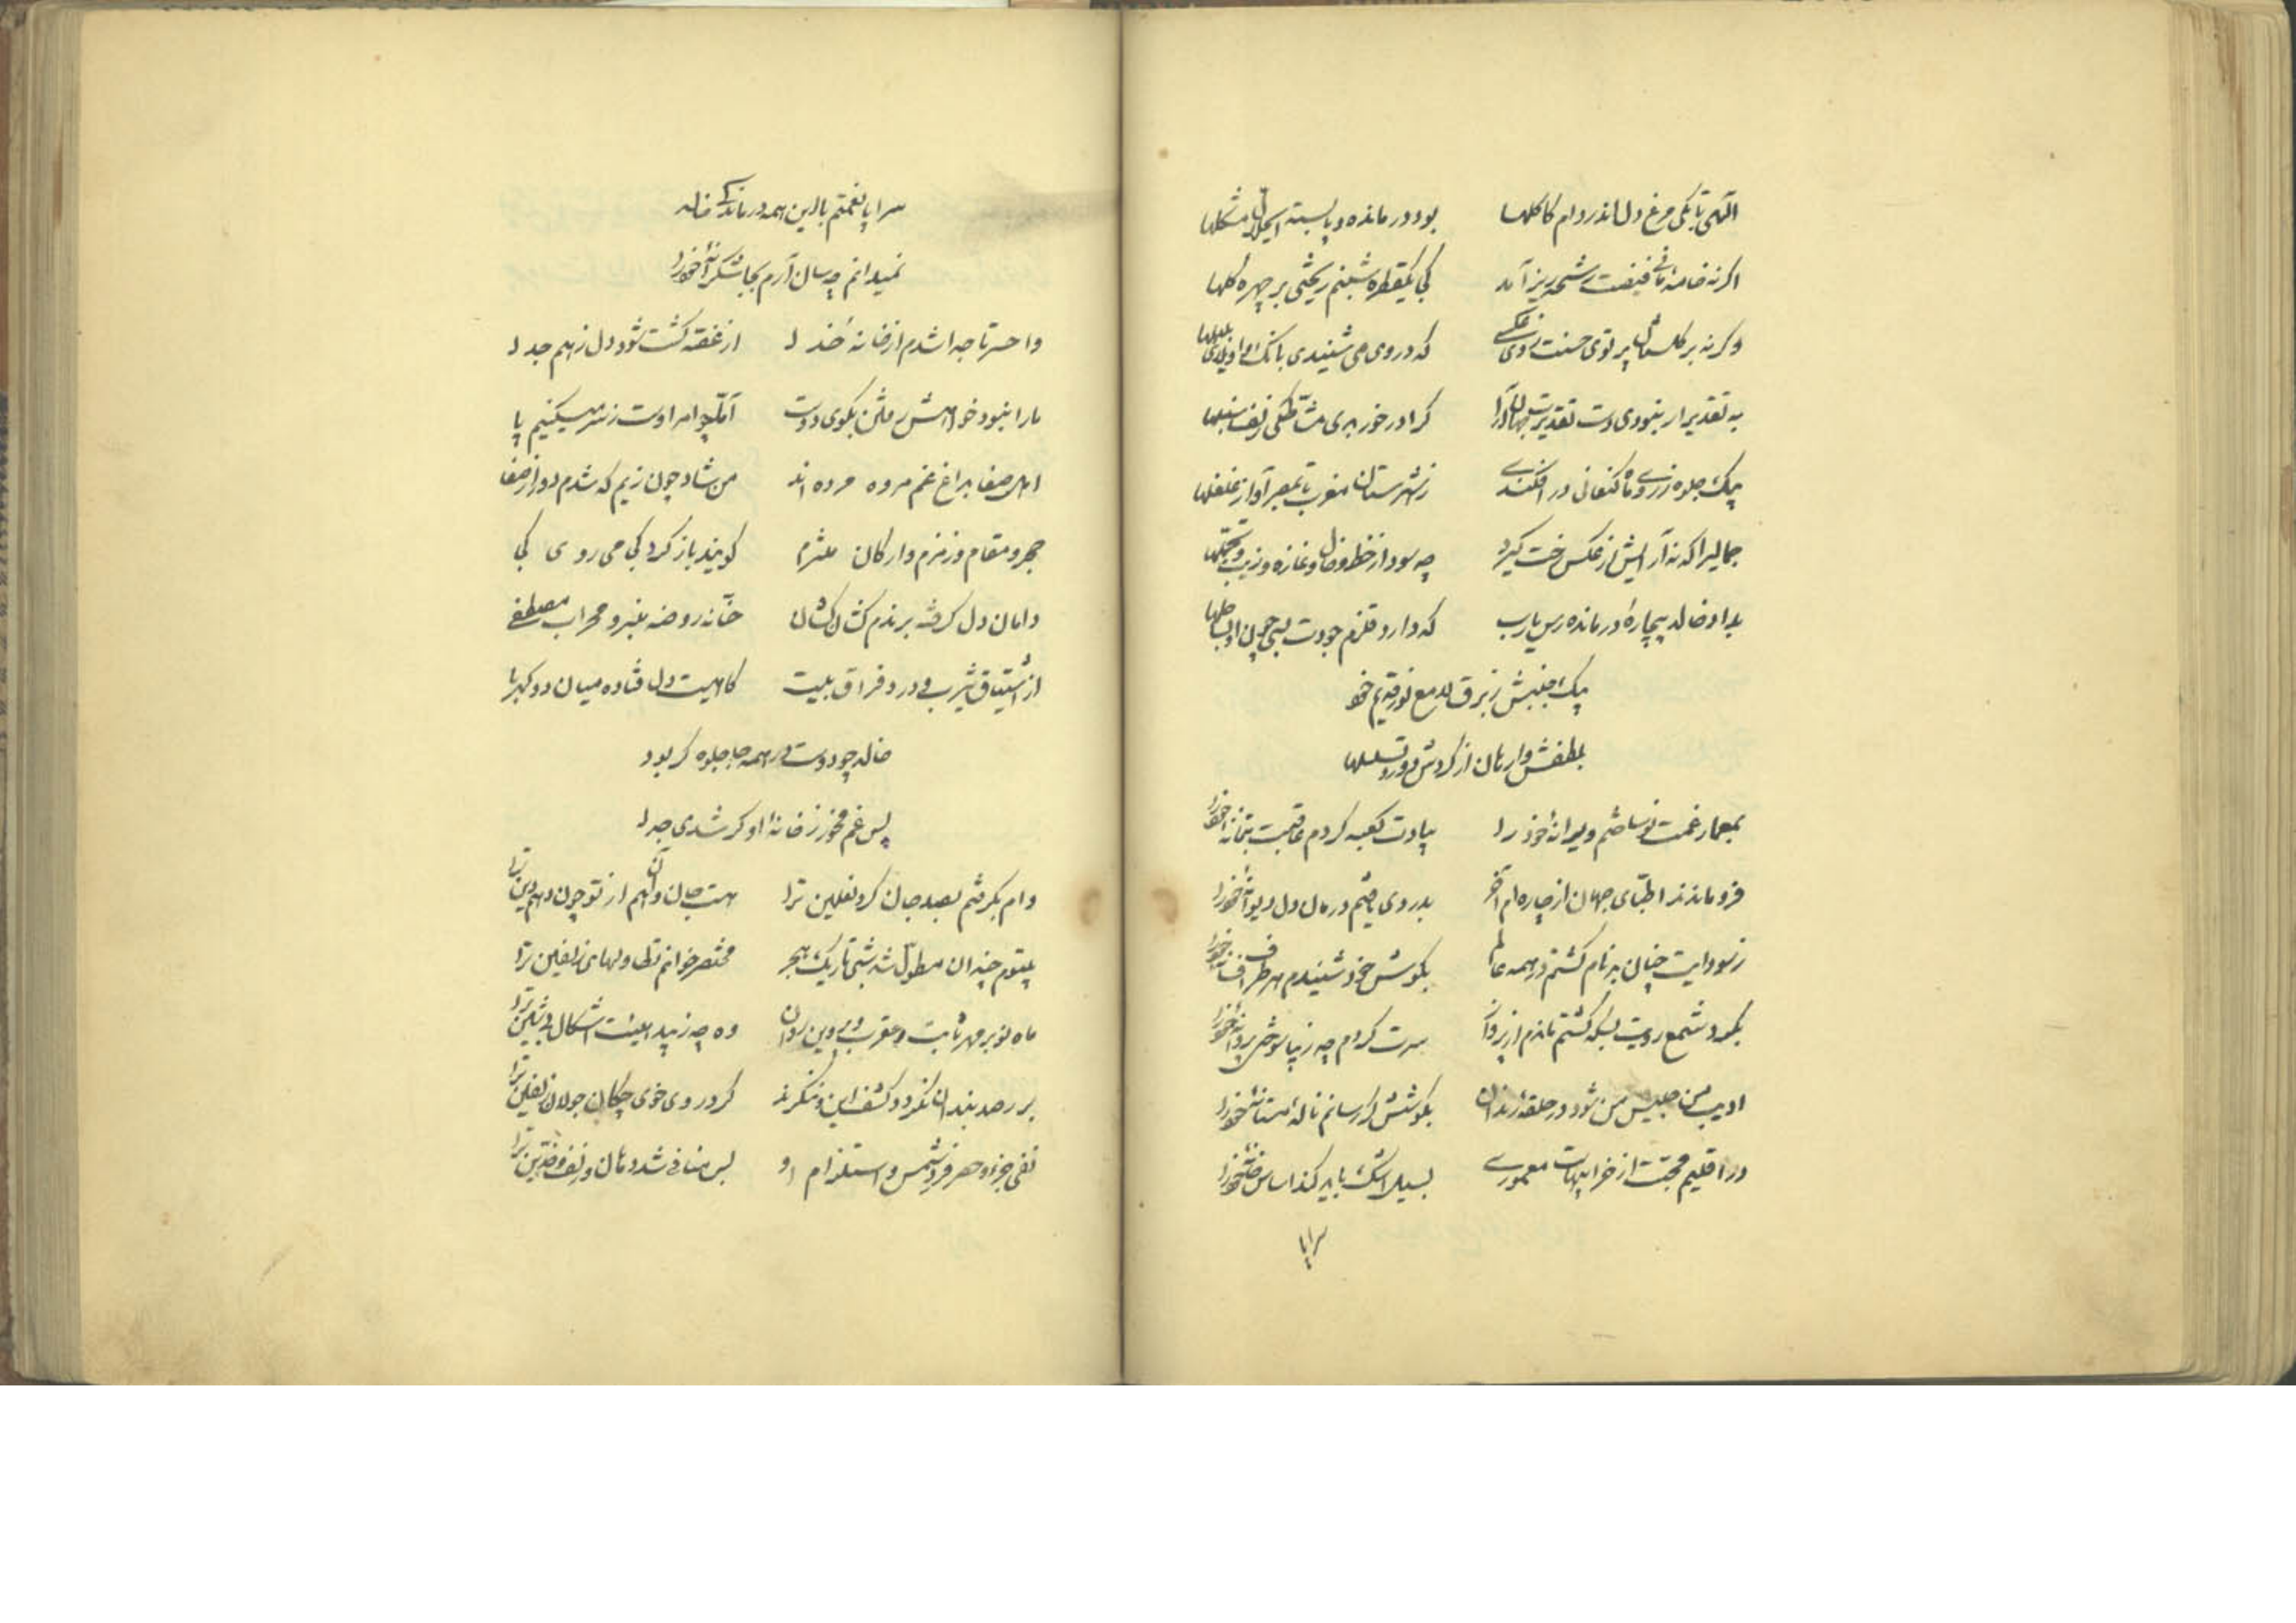 الهی تا بکی مرغ دل اندر دام کاکلها بود درمانده و پابسته ای حلال مشکلها
اگر نه خامهٔ مانی فیضت رشحه ریز آمد کی یکقطره شبنم ریختی بر چهره گلها
وگر نه بر گلستان پرتوی حسنت زدی عکسی که در وی می شنیدی بانک واویلای بلبلها
به تقدیر ار نبودی دست تقدیرت جهان آرا کرا در خور بدی مشاطکی زلف سنبلها
بیک جلوه ز روی ماه کنعانی در افکندی ز شهرستان مغرب تا بمصر آواز غلغلها
جمالیرا که نه آرایش از عکس رخت گیرد چه سود از خط و خال و غازه و زیب و تجملها
بداد خالد بیچارهٔ درمانده رس یارب که دارد قلزم جودت بسی چون او بساحلها
بیک جنبش ز برق لامع نور قدیم خود
بلطفش وارهان از گردش دور و تسلسلها
بمعمار غمت نو ساختم ویرانهٔ خود را بیادت کعبه کردم عاقبت بتخانهٔ خود را
فرو ماندند اطبای جهان از چاره ام آخر بدردی یافتم درمان دل دیوانهٔ خود را
ز سودایت چنان بدنام گشتم در همه عالم بگوش خود شنیدم هر طرف افسانهٔ خود را
بگرد شمع رویت بسکه گشتم ماندم از پرواز سرت گردم چه زیبا سوختی پروانهٔ خود را
ادیب من جلیس من شود در حلقهٔ رندان بگوشش گر رسانم نالهٔ مستانهٔ خود را
در اقلیم محبت از خرابیهاست معموری بسیل اشک باید کند اساس خانهٔ خود را
سراپا
سراپا نعمتم با این همه درماندگی خالد
نمیدانم چسان آرم بجا شکرانهٔ خود را
وا حسرتا جدا شدم از خانهٔ خدا از غصه گشت شود دل ز هم جدا
ما را نبود خواهش رفتن بکوی دوست اما چو امر اوست ز سر میکنیم پا
اهل صفا بداغ غم مروه مرده اند من شاد چون زیم که شدم دور از صفا
حجر و مقام و زمزم و ارکان ملتزم گویند باز گرد کجا می روی کجا
دامان دل گرفته برندم کشان کشان حنانه روضه منبر و محراب مصطفی
از اشتیاق یثرب و درد فراق بیت کاهیست دل فتاده میان دو کهربا
خالد چو دوست در همه جا جلوه گر بود
پس غم مخور ز خانهٔ او گر شدی جدا
وام بگرفتم بصد جان گرد نعلین ترا هست جان وآن هم از تو چون دهم دین ترا
بیتوم چندان مطول شد شب تاریک هجر مختصر خوانم تطاولهای زلفین ترا
ماه نو بر مهر ثابت و عقرب وی وین روان وه چه زیبد هیئت اشکال
بر رصد بندان نگردد کشف این و ننگرند گر در وی خوی چکان جولان زلفین ترا
نفی جزء و حصر فرد شمس و استلزام او بس منافی شد دهان و زلف و خدین ترا